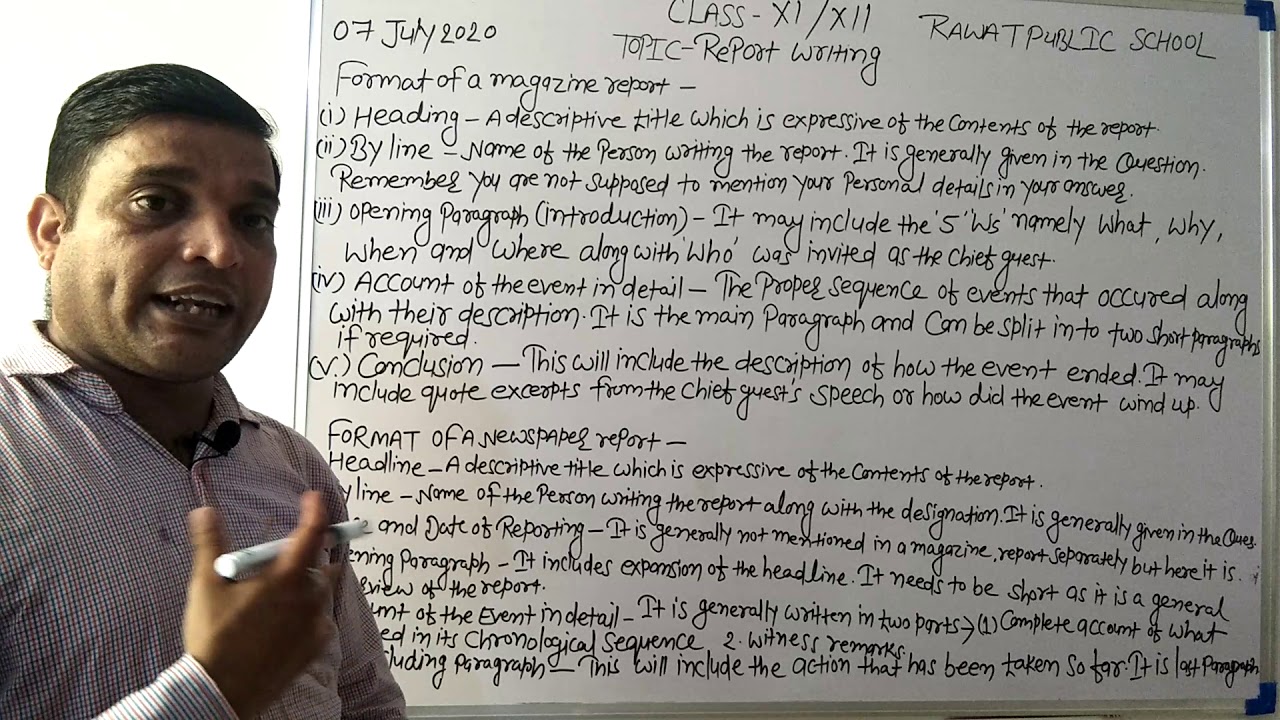 07 July 2020
CLASS - XI / XII
RAWAT PUBLIC SCHOOL
TOPIC - RePort Writing
Format of a magazine report –
(i) Heading – A descriptive title which is expressive of the Contents of the report.
(ii) By line – Name of the Person writing the report. It is generally given in the Question.
Remember you are not supposed to mention your Personal details in your answer.
(iii) Opening Paragraph (introduction) – It may include the '5 'Ws' namely What, Why,
When and where along with 'Who' was invited as the Chief guest.
(iv) Account of the event in detail – The Proper sequence of events that occured along
with their description. It is the main Paragraph and Can be split in to two short paragraphs
if required.
(v.) Conclusion – This will include the description of how the event ended. It may
include quote excerpts from the Chief guest's speech or how did the event wind up.
FORMAT OF A NEWSPAPER report –
Headline – A descriptive title which is expressive of the Contents of the report.
y line – Name of the Person writing the report along with the designation. It is generally given in the Ques.
and Date of Reporting – It is generally not mentioned in a magazine report separately but here it is.
ening Paragraph – It includes expansion of the headline. It needs to be short as it is a general
view of the report.
unt of the Event in detail – It is generally written in two parts → (1) Complete account of what
ed in its Chronological Sequence 2. witness remarks.
luding Paragraph – This will include the action that has been taken so far. It is last Paragraph